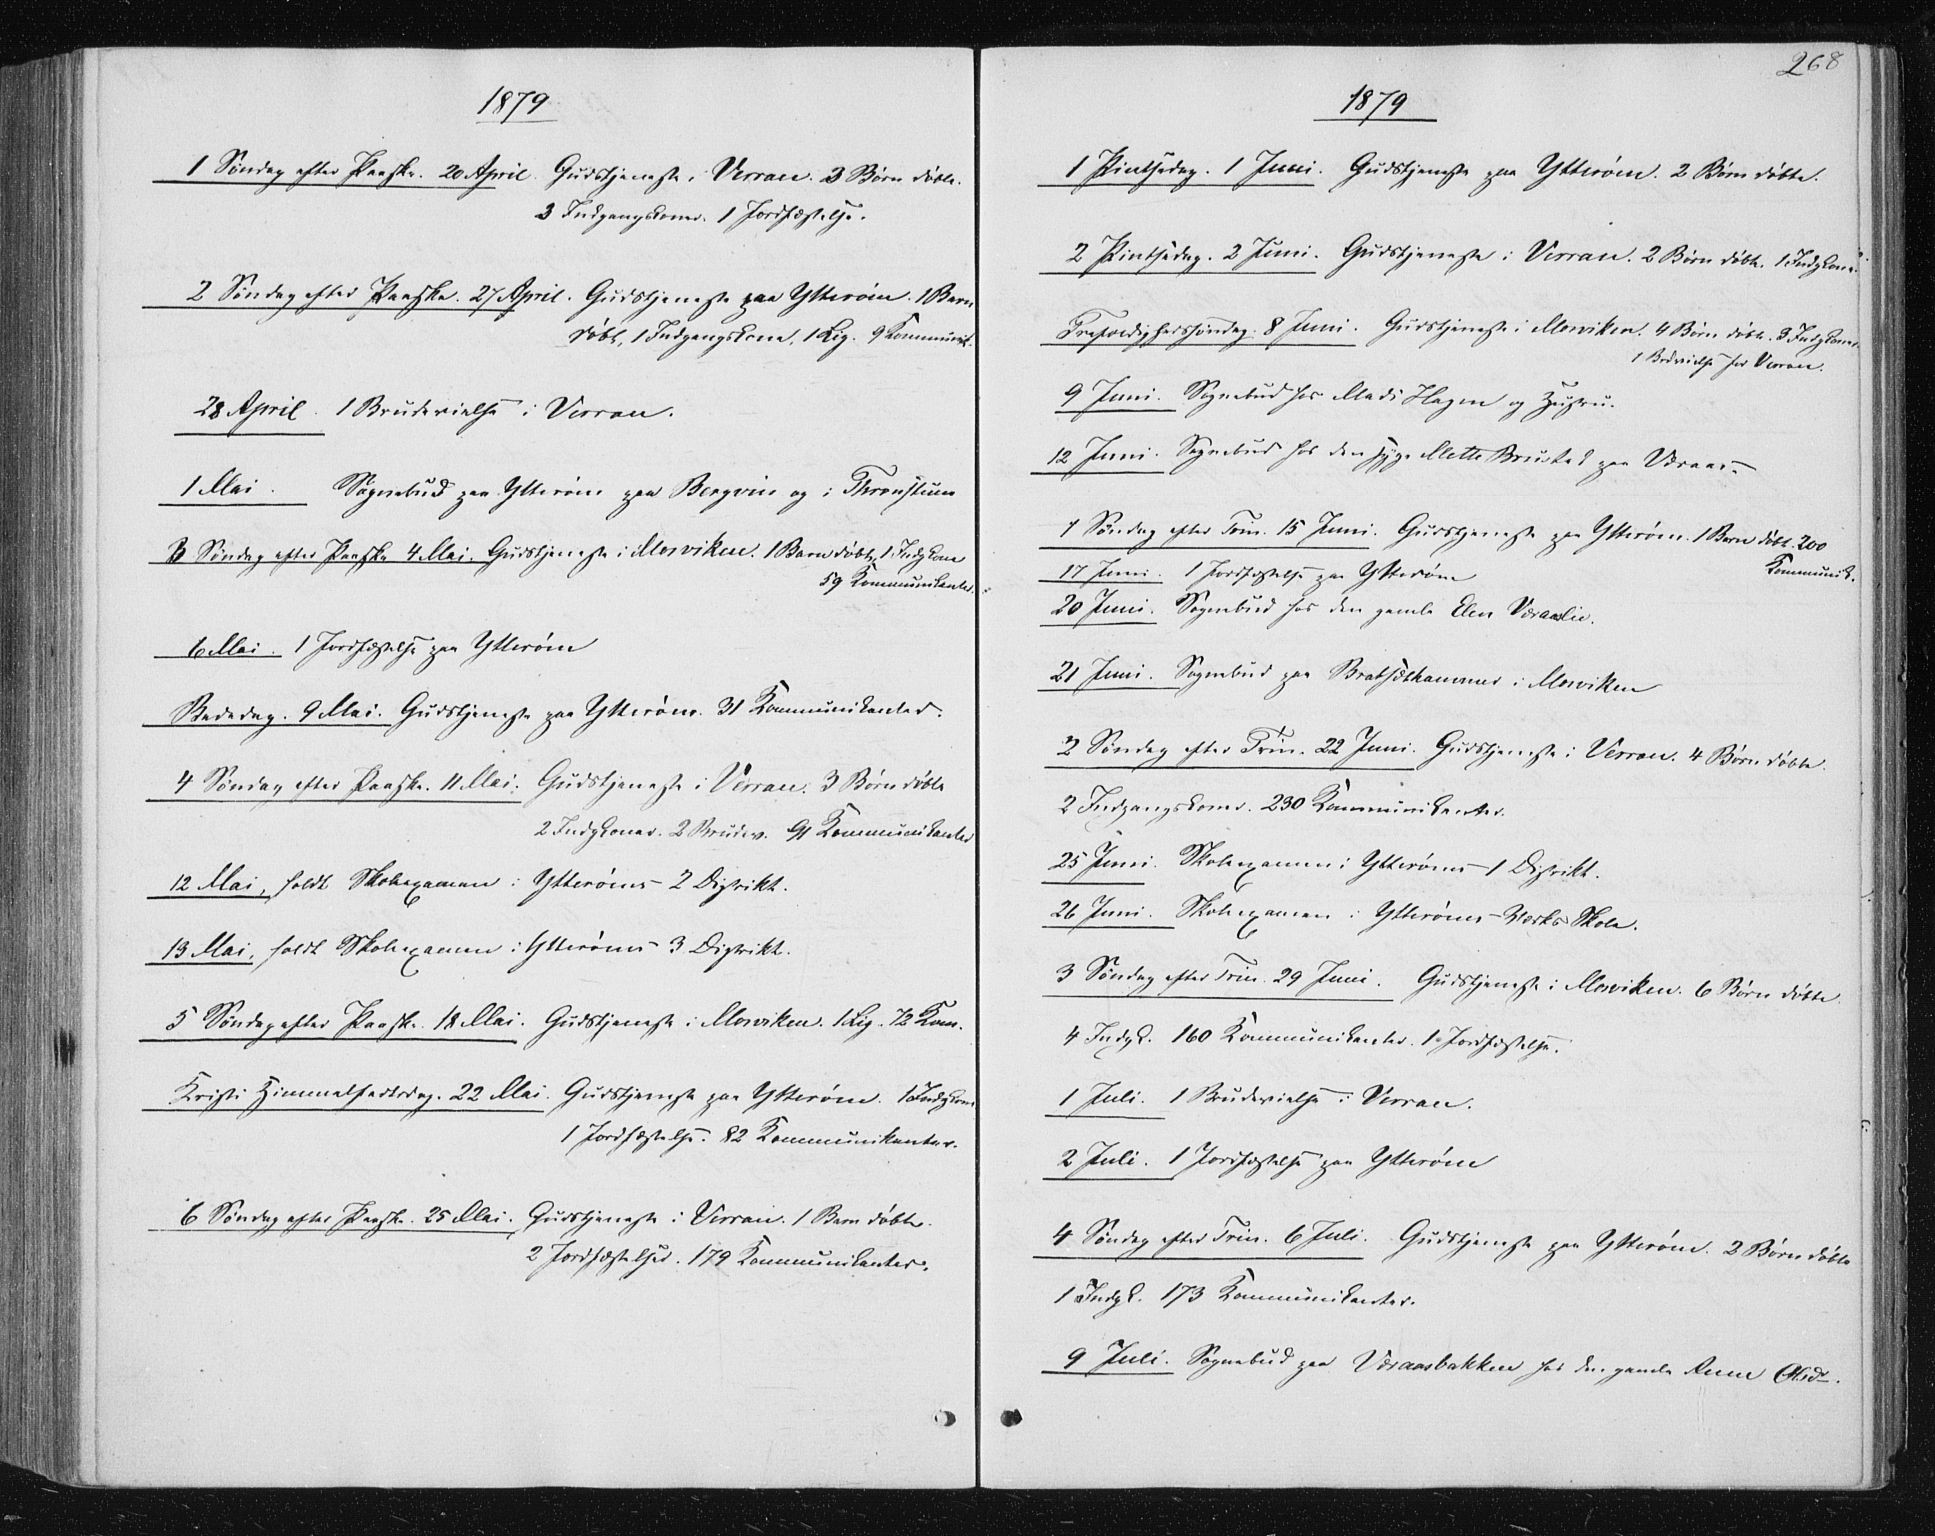 1879
1 Søndag efter Paaske. 20 April. Gudstjeneste i Verran. 3 Børn døbte.
3 Indgangskoner. 1 Jordfæstelse.
2 Søndag efter Paaske. 27 April. Gudstjeneste paa Ytterøen. 1 Barn
døbt, 1 Indgangskone, 1 Lig. 9 Kommunik.
28 April. 1 Brudevielse i Verran.
1 Mai. Sognebud paa Ytterøen paa Bergvin og i
3 Søndag efter Paaske 4 Mai. Gudstjeneste i Mosviken. 1 Barn døbt, 1 Indgkone
59 Kommunikanter.
6 Mai. 1 Jordfæstelse paa Ytterøen
Bededag. 9 Mai. Gudstjeneste paa Ytterøen. 31 Kommunikanter.
4 Søndag efter Paaske. 11 Mai. Gudstjeneste i Verran. 3 Børn døbte
2 Indgkoner. 2 Brudev. 91 Kommunikanter
12 Mai, holdt Skoleexamen i Ytterøens 2 Distrikt.
13 Mai, holdt Skoleexamen i Ytterøens 3 Distrikt.
5 Søndag efter Paaske. 18 Mai. Gudstjeneste i Mosviken. 1 Lig. 72 Kom.
Kristi Himmelfartsdag. 22 Mai. Gudstjeneste paa Ytterøen. 1 Indgkone
1 Jordfæstelse. 82 Kommunikanter.
6 Søndag efter Paaske. 25 Mai. Gudstjeneste i Verran. 1 Barn døbt.
2 Jordfæstelser. 179 Kommunikanter.
268
1879
1 Pintsedag. 1 Juni. Gudstjeneste paa Ytterøen. 2 Børn døbte.
2 Pintsedag. 2 Juni. Gudstjeneste i Verran. 2 Børn døbte. 1 Indgkone.
Trefoldighedssøndag. 8 Juni. Gudstjeneste i Mosviken. 4 Børn døbte. 3 Indgkoner.
1 Brdvielse for Verran.
9 Juni. Sognebud hos Mads Hagen og Hustru.
12 Juni. Sognebud hos den syge Mette paa Vdraas.
1 Søndag efter Trin. 15 Juni. Gudstjeneste paa Ytterøen. 1 Barn døbt. 200
Kommunik.
17 Juni. 1 Jordfæstelse paa Ytterøen
20 Juni. Sognebud hos den gamle Elen
21 Juni. Sognebud paa Bratsethammer i Mosviken
2 Søndag efter Trin. 22 Juni. Gudstjeneste i Verran. 4 Børn døbte.
2 Indgangskoner. 230 Kommunikanter.
25 Juni. Skoleexamen i Ytterøens 1 Distrikt.
26 Juni. Skoleexamen i Ytterøens-Værks Skole.
3 Søndag efter Trin. 29 Juni. Gudstjeneste i Mosviken. 6 Børn døbte.
4 Indgk. 160 Kommunikanter. 1 Jordfæstelse.
1 Juli. 1 Brudevielse i Verran.
2 Juli. 1 Jordfæstelse paa Ytterøen
4 Søndag efter Trin. 6 Juli. Gudstjeneste paa Ytterøen. 2 Børn døbte
1 Indgk. 173 Kommunikanter.
9 Juli. Sognebud paa hos den gamle Anne Olsdr.